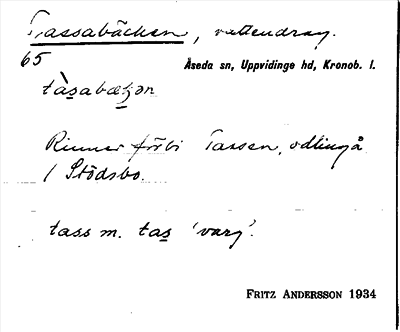 Tassabäcken, vattendrag.
65
Åseda sn, Uppvidinge hd, Kronob. l.
tàsabæʈʂən
Rinner förbi Tassen, odling å
/ Stödsbo.
tass m. tas 'varg'.
FRITZ ANDERSSON 1934